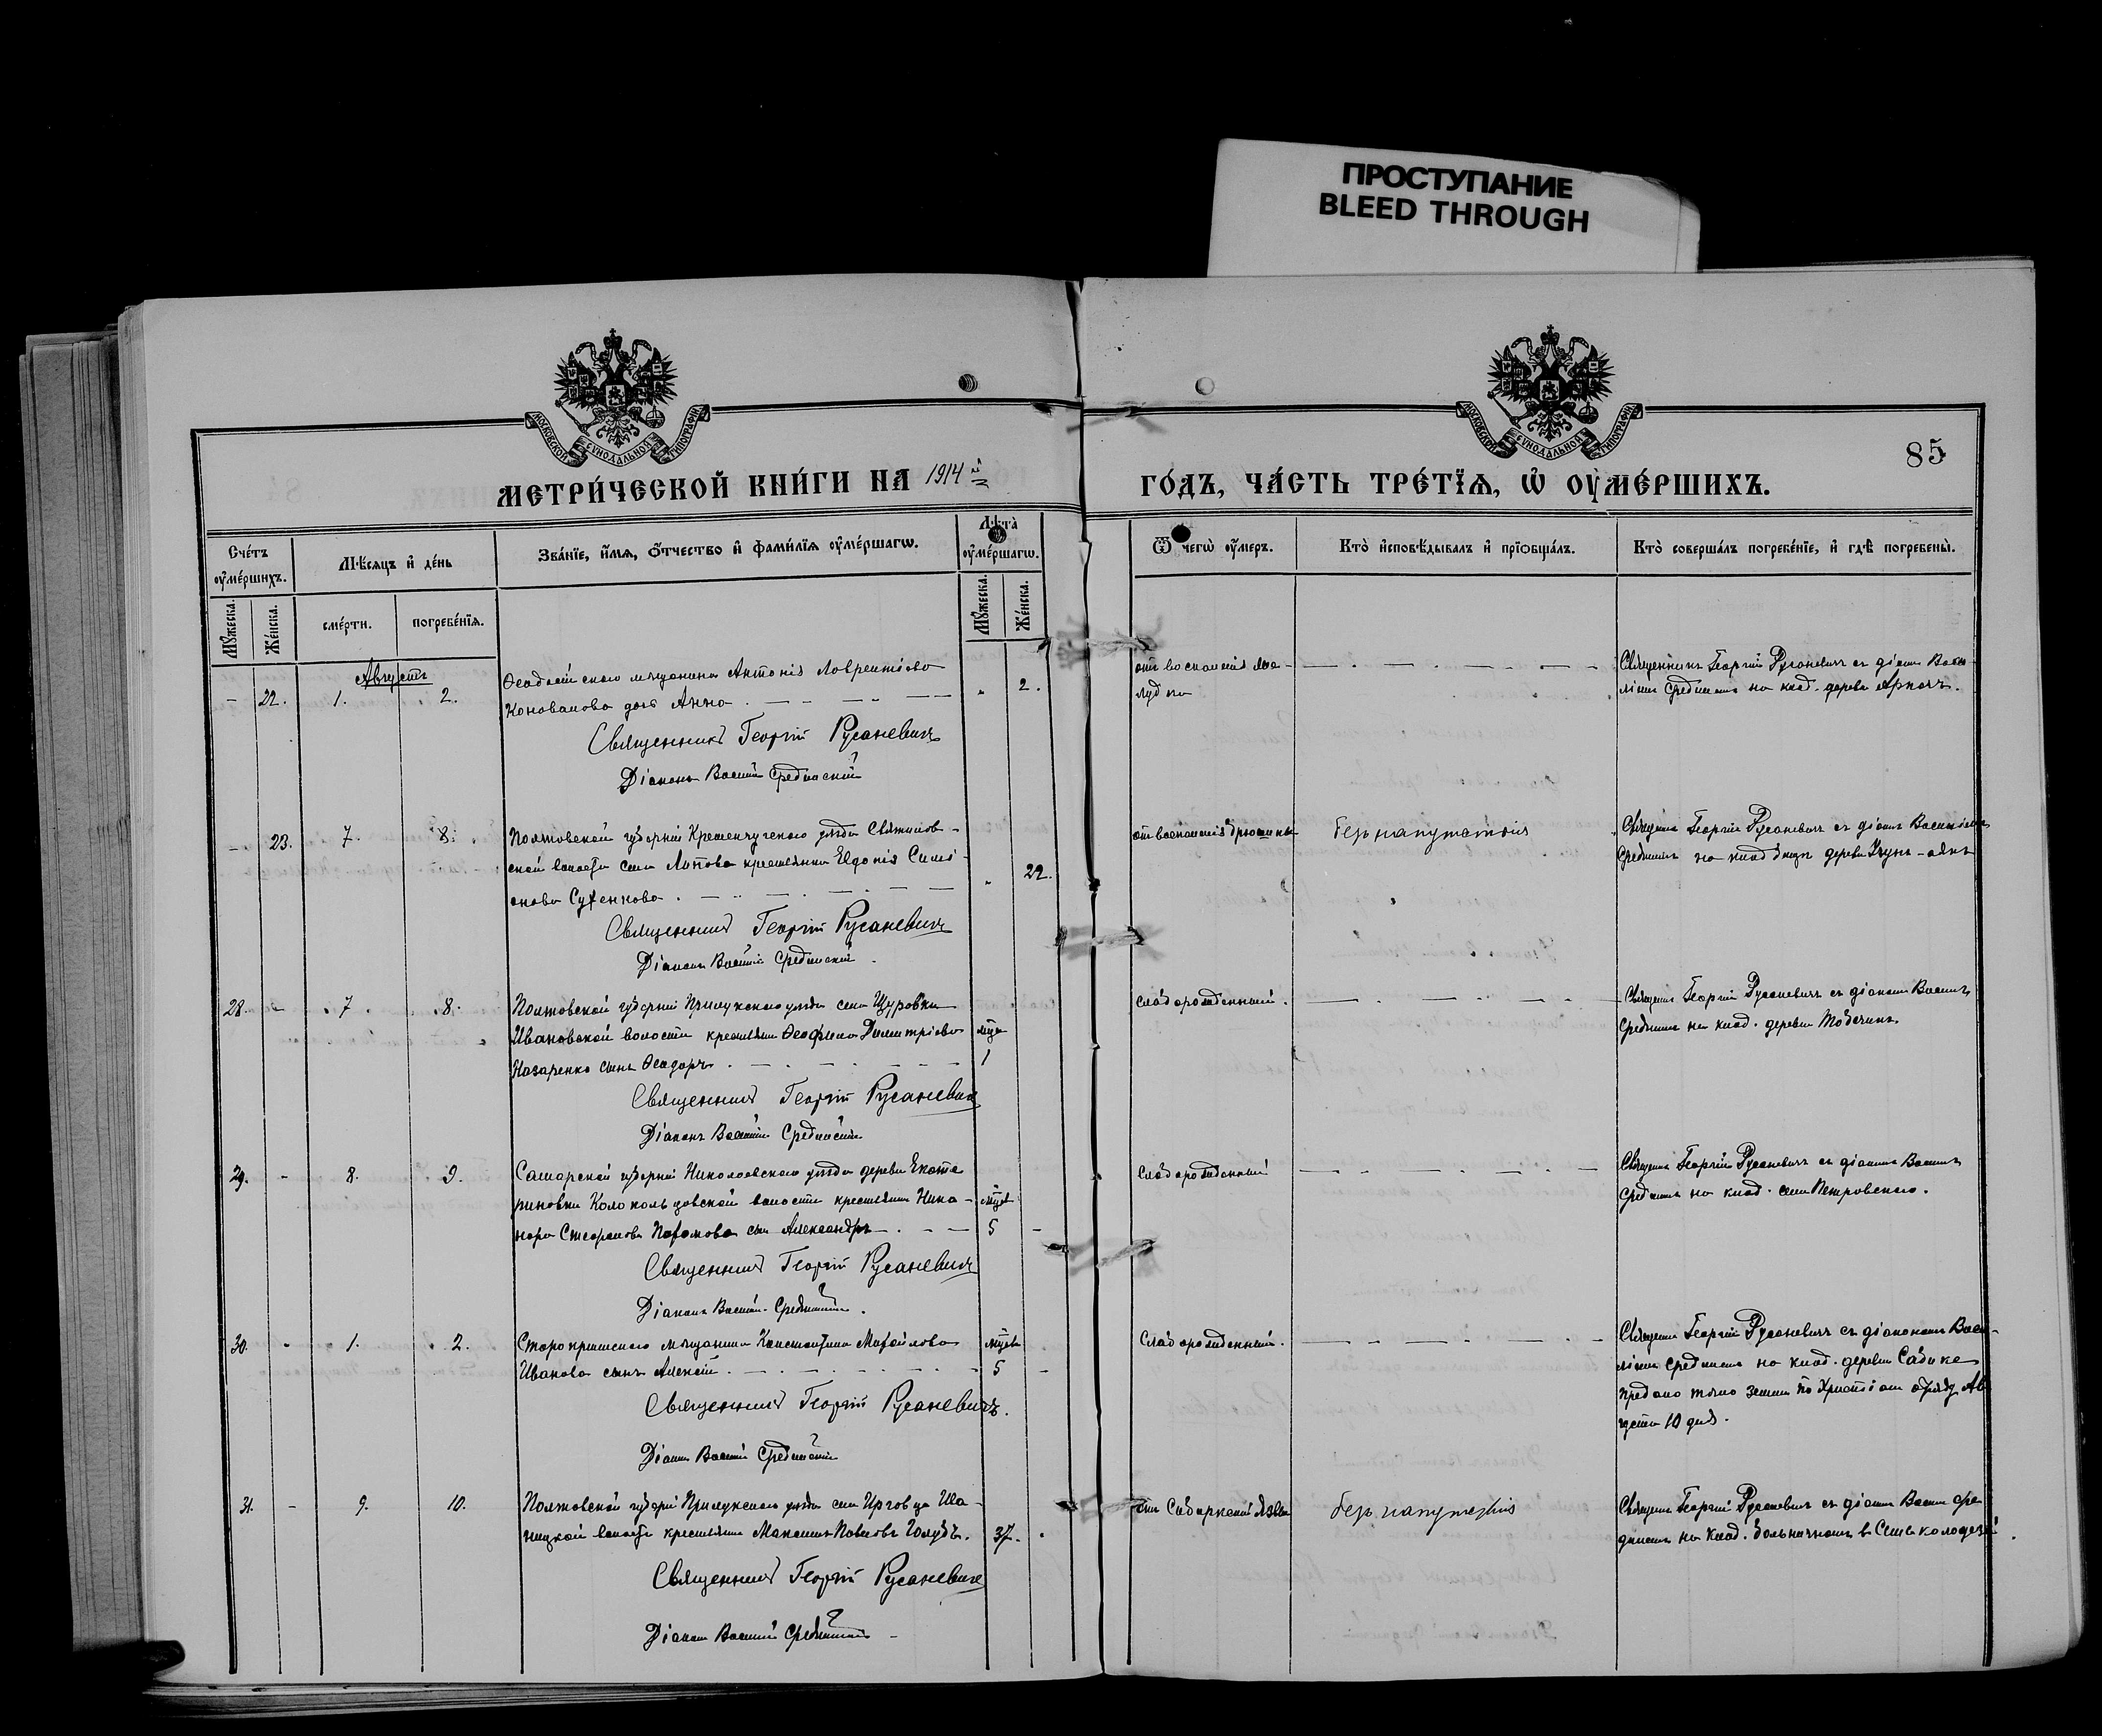 ПРОСТУПАНИЕ
BLEED THROUGH
МОСКОВСКОЙ СѴНОДАЛЬНОЙ ТИПОГРАФІИ
МОСКОВСКОЙ СѴНОДАЛЬНОЙ ТИПОГРАФІИ
85
МЕТРИ́ЧЕСКОЙ КНИ́ГИ НА 1914 й
ГО́ДЪ, ЧА́СТЬ ТРЕ́ТЇѦ, Ѡ҆ ОУ҆МЕ́РШИХЪ.
Сче́тъ оу҆ме́ршихъ.
Мѣ́сѧцъ и҆ де́нь
Зва́нїе, и҆́мѧ, ѻ҆́тчество и҆ фами́лїѧ оу҆ме́ршагѡ.
Лѣ́та оу҆ме́ршагѡ.
Ѿ чегѡ̀ оу҆́меръ.
Кто̀ и҆сповѣ́дывалъ и҆ прїѻбща́лъ.
Кто̀ соверша́лъ погребе́нїе, и҆ гдѣ̀ погребены̀.
Мꙋ́жеска.
Же́нска.
сме́рти.
погребе́нїѧ.
Мꙋ́жеска.
Же́нска.
Августъ
- 22. 1. 2.
Ѳеодосійскаго мѣщанина Антонія Лаврентіева
Коновалова дочь Анна
Священникъ Георгій Русаневичъ
Діаконъ Василій Срединскій
" 2.
отъ воспаленія же-
лудка
Священникъ Георгій Русаневичъ съ діакон Васи-
ліемъ Срединскимъ на клад. деревни
- 23. 7. 8.
Полтовской губерніи Кременчугскаго уѣзда
ской волости села Липова крестьянка Евдокія Симе-
онова Сухенкова
Священникъ Георгій Русаневичъ
Діаконъ Василій Срединскій
" 22.
отъ воспаленія брюшины
безъ напутствія
Священ Георгій Русаневичъ съ діакон Василіемъ
Срединскимъ на кладбищѣ деревни Узунъ-аякъ
28. - 7. 8.
Полтовской губерніи Прилукскаго уѣзда села Щуровки
Ивановской волости крестьянина Ѳеофила Димитріева
Назаренко сынъ Ѳеодоръ
Священникъ Георгій Русаневичъ
Діаконъ Василій Срединскій
1
слаборожденный.
Священ Георгій Русаневичъ съ діакономъ Василіемъ
Срединскимъ на клад. деревни Тобечикъ
29. - 8. 9.
Самарской губерніи Николаевскаго уѣзда деревни Екате
риновки Колокольцовской волости крестьянина Ника-
нора Стефанова Пахомова сынъ Александръ
Священникъ Георгій Русаневичъ
Діаконъ Василій Срединскій
5 -
Слаборожденный
Священ Георгій Русаневичъ съ діакономъ Василіемъ
Срединскимъ на клад. села Петровскаго.
30. - 1. 2.
Старокрымскаго мѣщанина Константина Михайлова
Иванова сынъ Алексій
Священникъ Георгій Русаневичъ.
Діаконъ Василій Срединскій
5 -
Слаборожденный.
Священ Георгій Русаневичъ съ діакономъ Васи-
ліемъ Срединскимъ на клад. деревни
предано тѣло землѣ по Христіан обряду Ав
густа 10 дня.
31. - 9. 10.
Полтовской губерніи Прилукскаго уѣзда села
волости крестьянинъ Максимъ Павловъ Голубъ.
Священникъ Георгій Русаневичъ
Діаконъ Василій Срединскій
37.
отъ Сибирской язвы
безъ напутствія
Священ Георгій Русаневичъ съ діакон Василіемъ Сре
динскимъ на клад. больничномъ в Семь колодезей.